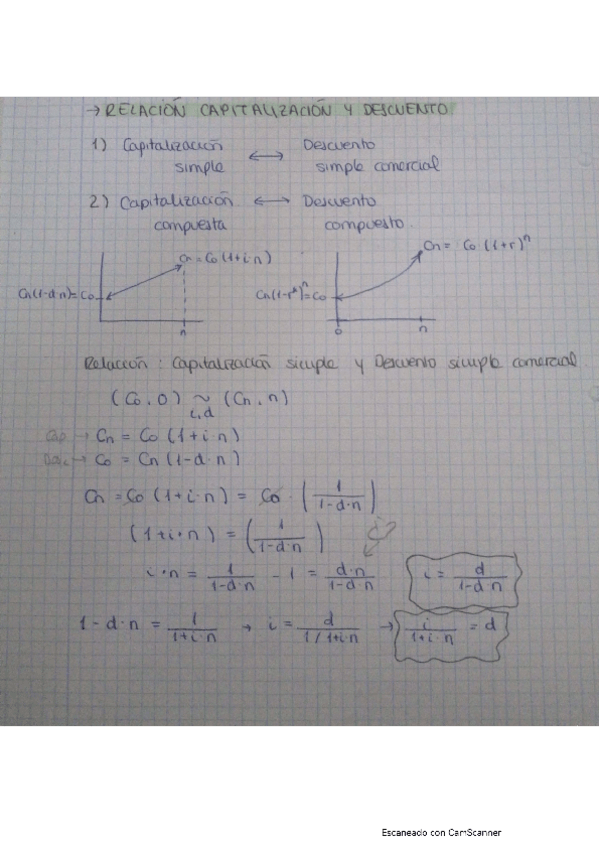 → RELACIÓN CAPITALIZACIÓN Y DESCUENTO
1) Capitalización ↔ Descuento
simple simple comercial
2) Capitalización ↔ Descuento
compuesta compuesto.
Cn = Co (1+i·n)
Cn(1-d·n)=Co
n
Cn = Co (1+r)^n
Cn(1-r*)^n=Co
0 n
Relación: Capitalización simple y Descuento simple comercial.
(Co, 0) ~ (Cn, n)
i,d
Cap → Cn = Co (1+i·n)
Desc → Co = Cn (1-d·n)
Cn = Co (1+i·n) = Co · (1/(1-d·n))
(1+i·n) = (1/(1-d·n))
i·n = 1/(1-d·n) - 1 = d·n/(1-d·n) i = d/(1-d·n)
1-d·n = 1/(1+i·n) → i = d/(1/1+i·n) → i/(1+i·n) = d
Escaneado con CamScanner